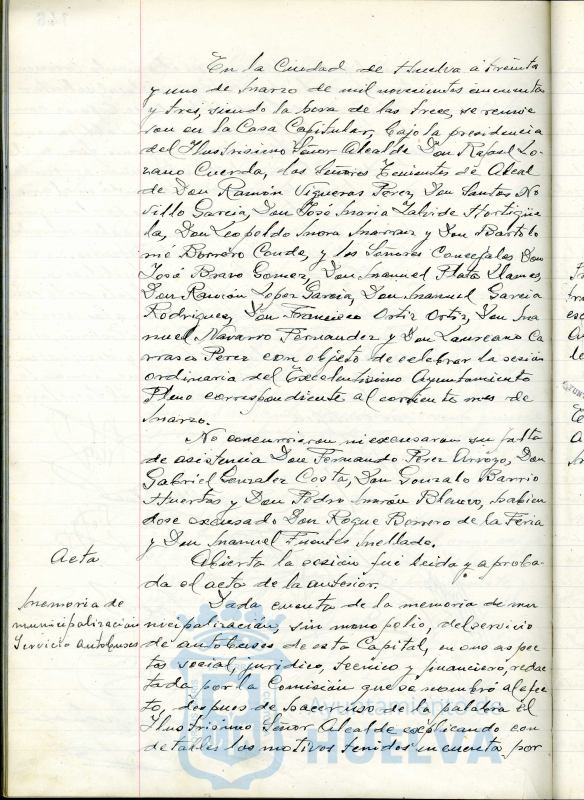 En la Ciudad de Huelva a treinta
y uno de Marzo de mil novecientos cincuenta
y tres, siendo la hora de las trece, se reunie
ron en la Casa Capitular, bajo la presidencia
del Ilustrisimo Señor Alcalde Don Rafael Lo
zano Cuerda, los Señores Tenientes de Alcal
de Don Ramón Vigueras Perez, Don Santos No
villo Garcia, Don José Maria Zalvide Hortigüe
la, Don Leopoldo Mora Marraez y Don Bartolo
mé Borrero Conde, y los Señores Concejales Don
José Bravo Gomez, Don Manuel Plata Llames,
Don Ramón Lopez Garcia, Don Manuel Garcia
Rodriguez, Don Francisco Ortiz Ortiz, Don Ma
nuel Navarro Fernandez y Don Laureano Ca
rrasco Perez con objeto de celebrar la sesión
ordinaria del Excelentisimo Ayuntamiento
Pleno correspondiente al corriente mes de
Marzo.
No concurrieron ni excusaron su falta
de asistencia Don Fernando Perez Arroyo, Don
Gabriel Gonzalez Costa, Don Gonzalo Barrio
Huertas y Don Pedro Morón Blanco, habien
dose excusado Don Roque Borrero de la Feria
y Don Manuel Fuentes Mellado.
Acta
Abierta la sesión fué leida y aproba-
da el acta de la anterior.
Memoria de
municipalización
Servicio autobuses
Dada cuenta de la memoria de mu
nicipalización, sin monopolio, del servicio
de autobuses de esta Capital, en sus aspec
tos social, juridico, tecnico y financiero, redac
tada por la Comisión que se nombró al efec
to, despues de hacer uso de la palabra el
Ilustrisimo Señor Alcalde explicando con
detalles los motivos tenidos en cuenta por
Ayuntamiento de
HUELVA